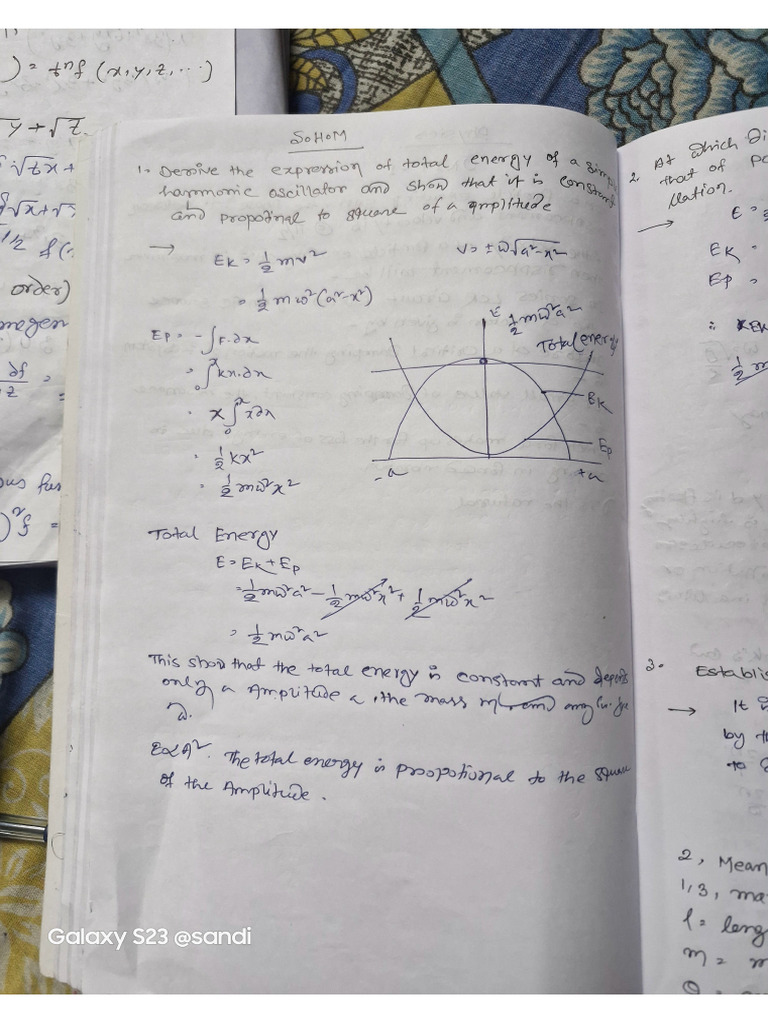 ) = tⁿf (x,y,z,...)
√y+√z.
√tx+
√x+√
1/2 f(
order)
mogen
∂f =
S.H.M
1. Derive the expression of total energy of a simple
harmonic oscillator and show that it is constant
and propotinal to square of a amplitude
→ Ek = 1/2 mv² v = ±ω√a²-x²
= 1/2 mω²(a²-x²)
Ep = -∫F.dx
= ∫₀ˣ kx.dx
= x∫₀ˣ xdx
= 1/2 kx²
= 1/2 mω²x²
E 1/2 mω²a²
Total energy
Ek
Ep
-a +a
Total Energy
E = Ek + Ep
= 1/2 mω²a² - 1/2 mω²x² + 1/2 mω²x²
= 1/2 mω²a²
This show that the total energy is constant and depents
only a Amplitude a, the mass m
ω.
E∝A². The total energy is propotional to the square
of the Amplitude.
2. At which
that of
llation.
→ E =
Ek =
Ep =
∴
3. Establis
→ It
by th
to
2, Mean
1/3, ma
l = leng
m = m
Galaxy S23 @sandi